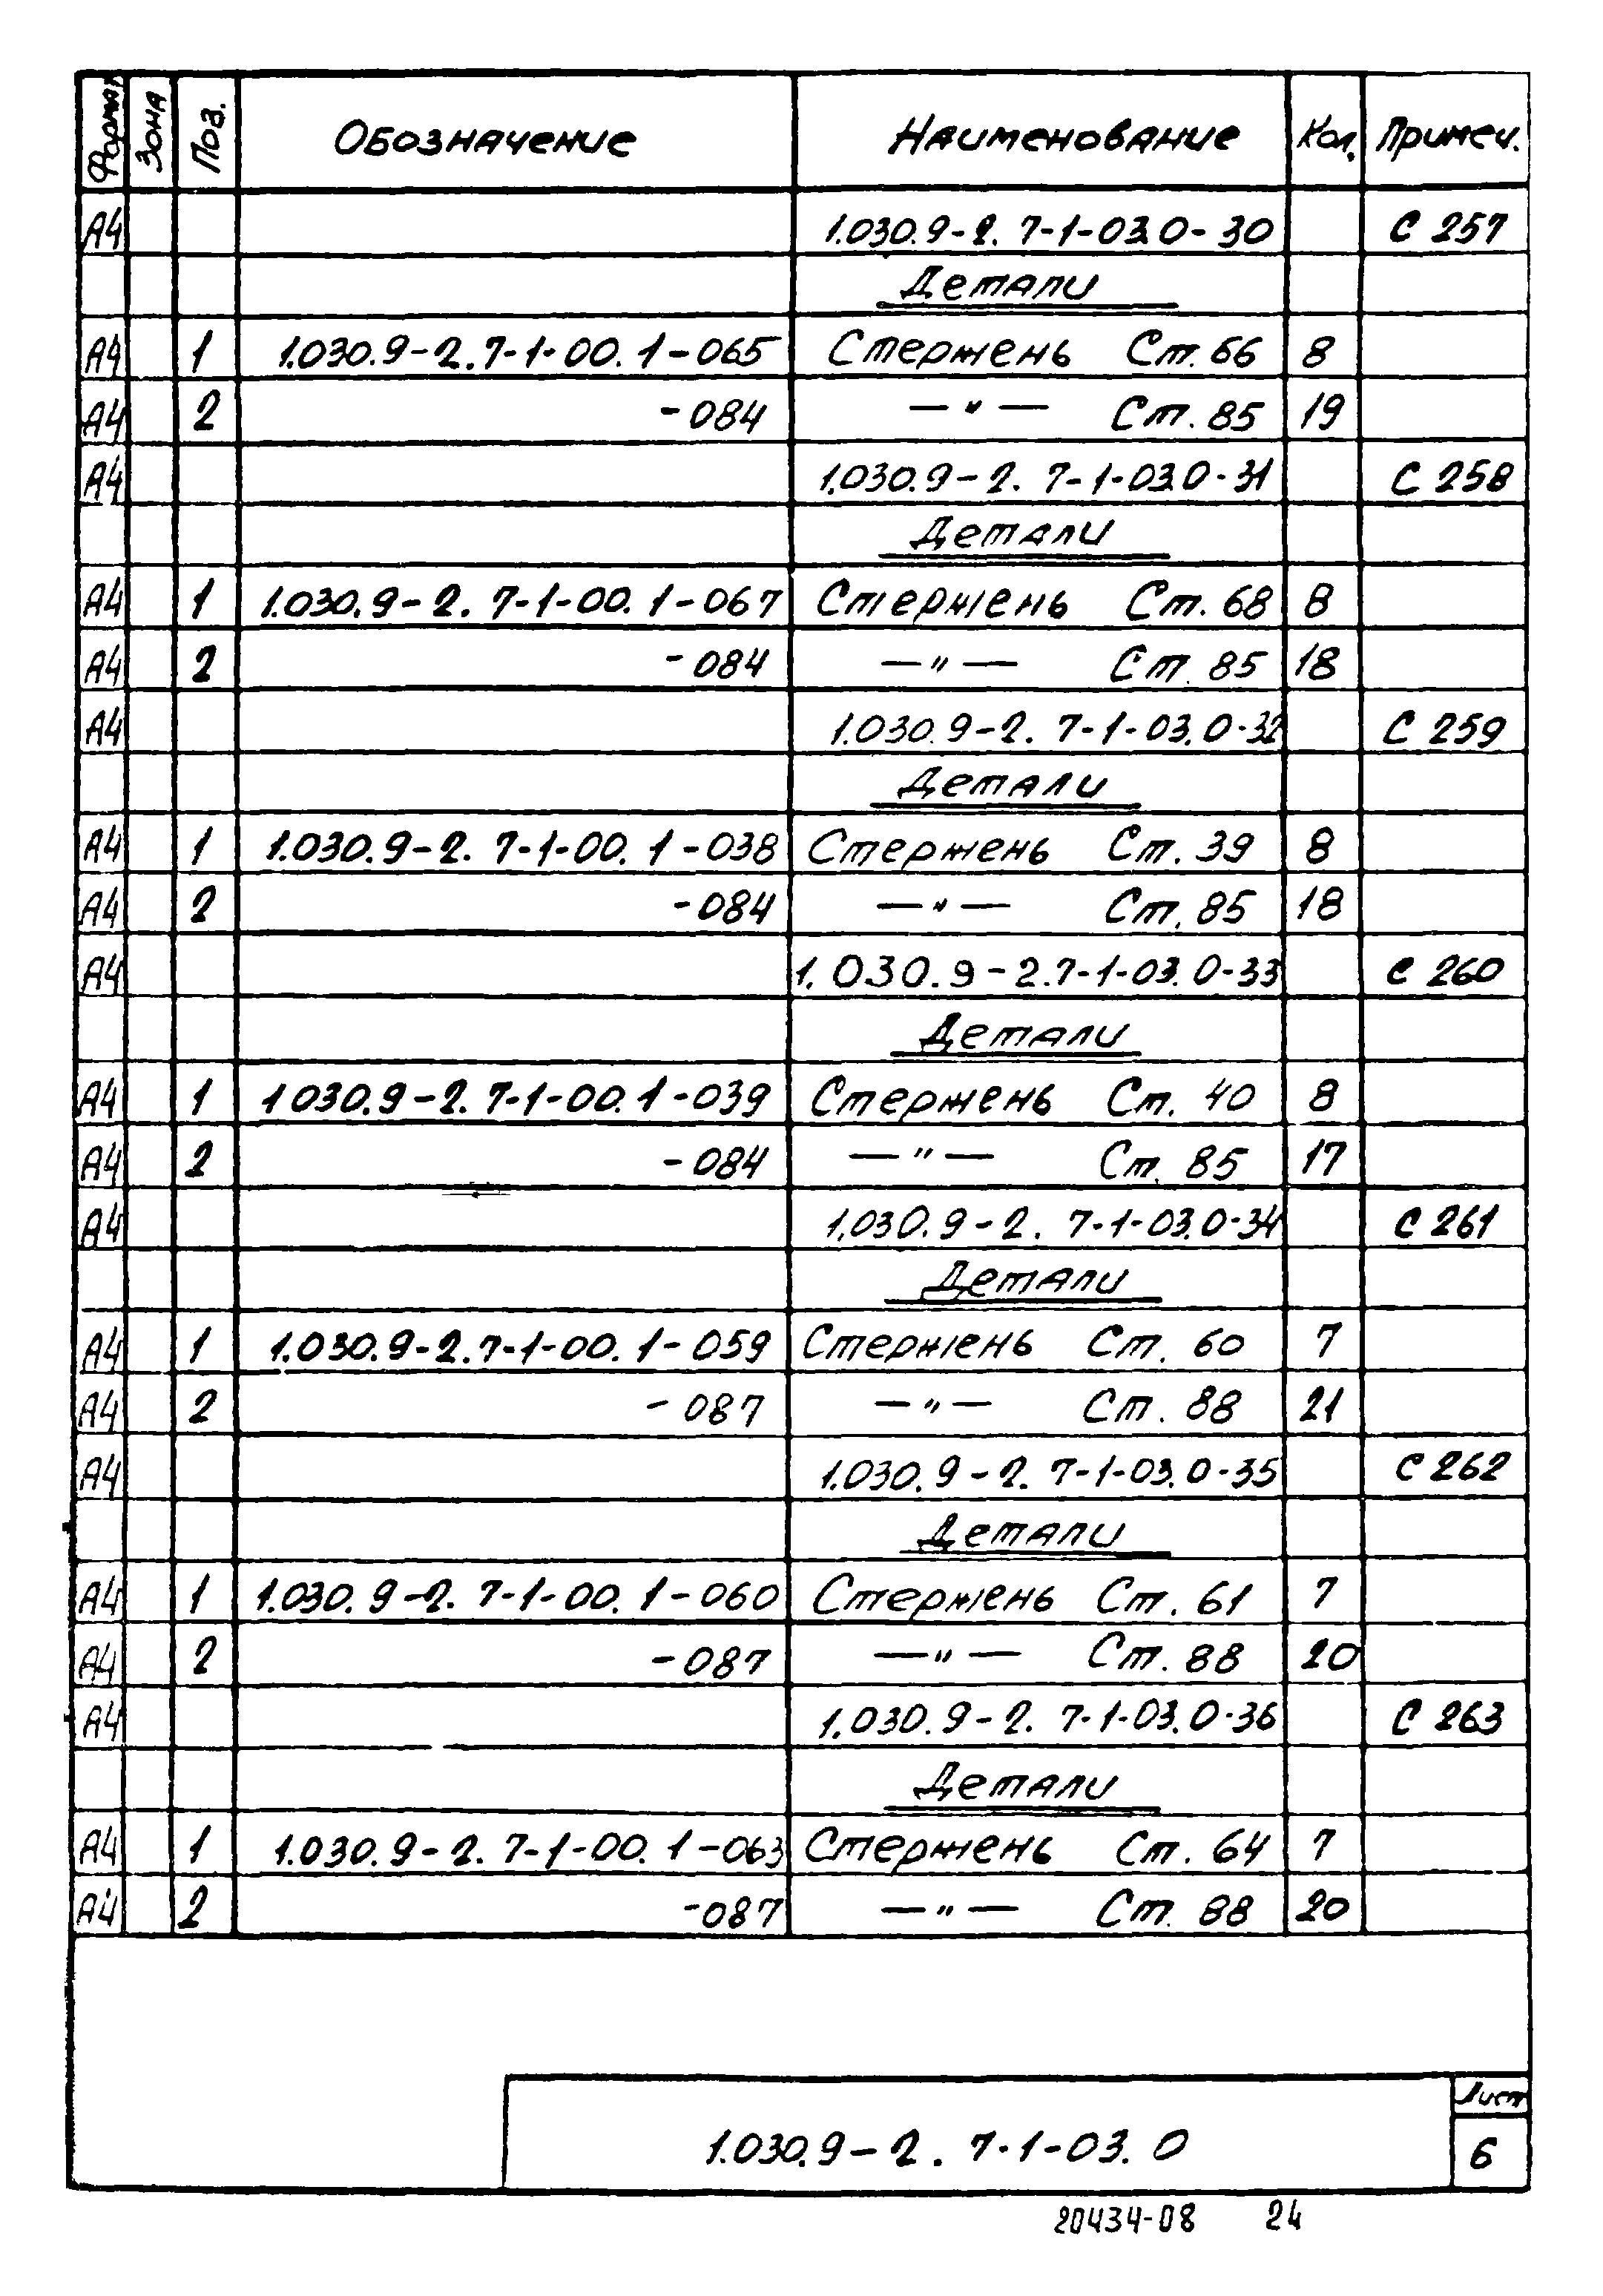 Формат Зона Поз. Обозначение Наименование Кол. Примеч.
А4 1.030.9-2. 7-1-03.0-30 С 257
Детали
А4 1 1.030.9-2.7-1-00.1-065 Стержень Ст. 66 8
А4 2 -084 — " — Ст. 85 19
А4 1.030.9-2. 7-1-03.0-31 С 258
Детали
А4 1 1.030.9-2. 7-1-00.1-067 Стержень Ст. 68 8
А4 2 -084 — " — Ст. 85 18
А4 1.030.9-2. 7-1-03.0-32 С 259
Детали
А4 1 1.030.9-2. 7-1-00.1-038 Стержень Ст. 39 8
А4 2 -084 — " — Ст. 85 18
А4 1.030.9-2.7-1-03.0-33 С 260
Детали
А4 1 1 030.9-2. 7-1-00.1-039 Стержень Ст. 40 8
А4 2 -084 — " — Ст. 85 17
А4 1.030.9-2. 7-1-03.0-34 С 261
Детали
А4 1 1.030.9-2.7-1-00.1-059 Стержень Ст. 60 7
А4 2 -087 — " — Ст. 88 21
А4 1.030.9-2. 7-1-03.0-35 С 262
Детали
А4 1 1.030.9-2. 7-1-00.1-060 Стержень Ст. 61 7
А4 2 -087 — " — Ст. 88 20
А4 1.030.9-2. 7-1-03.0-36 С 263
Детали
А4 1 1.030.9-2. 7-1-00.1-063 Стержень Ст. 64 7
А4 2 -087 — " — Ст. 88 20
Лист
1.030.9-2. 7-1-03.0 6
20434-08 24